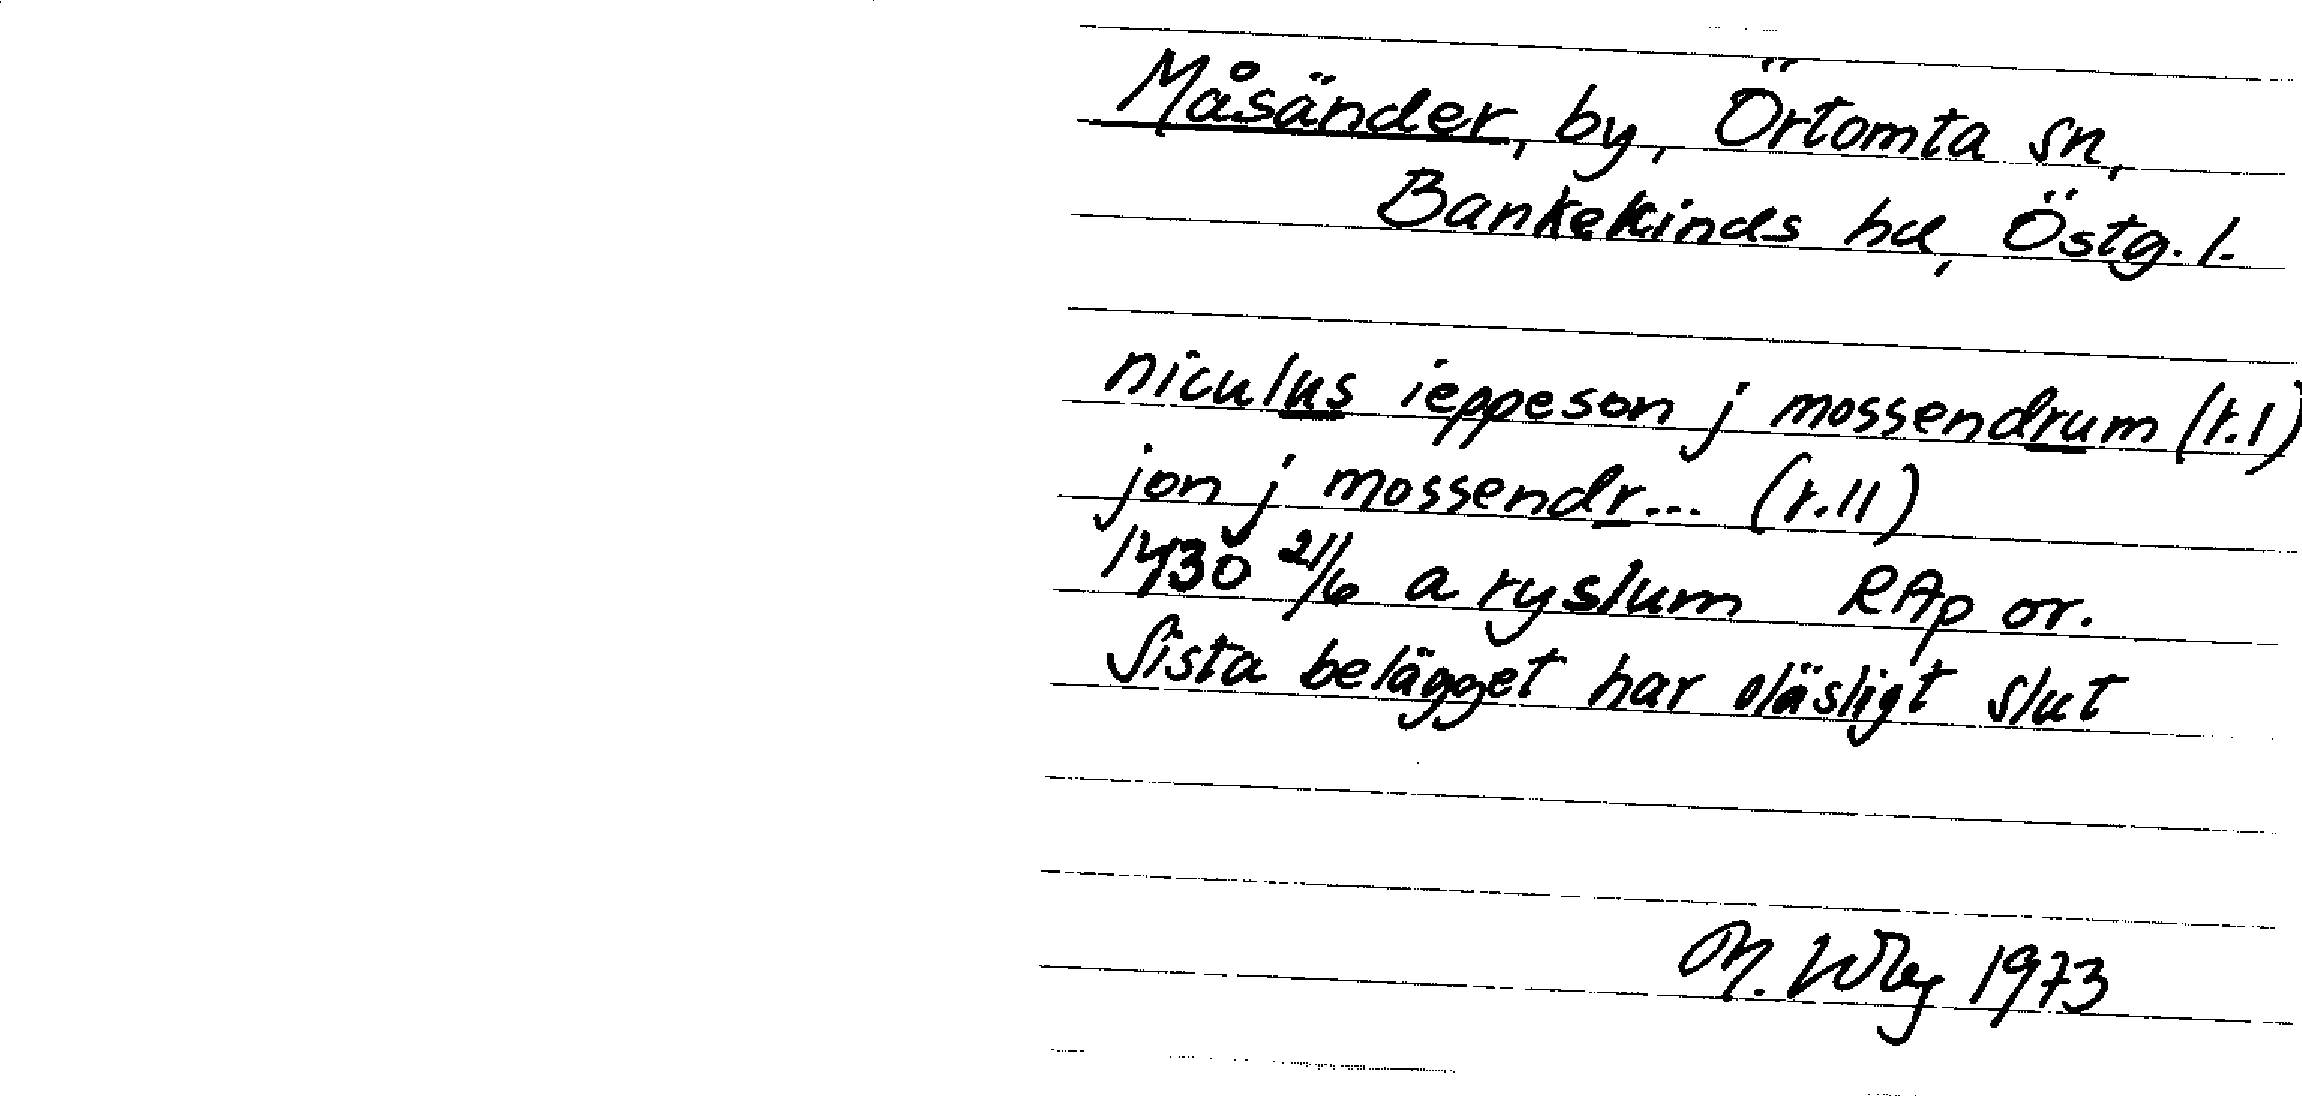 Måsänder, by, Örtomta sn,
Bankekinds hd, Östg. l.
niculus ieppeson j mossendrum (r.1)
jon j mossendr... (r.11)
1430 21/6 a ryslum RAp or.
Sista belägget har oläsligt slut
M. 1973